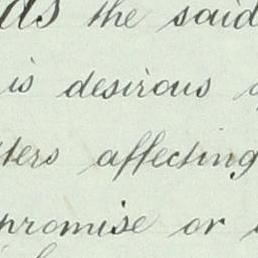 as the said
is desirous
ters affecting
promise or